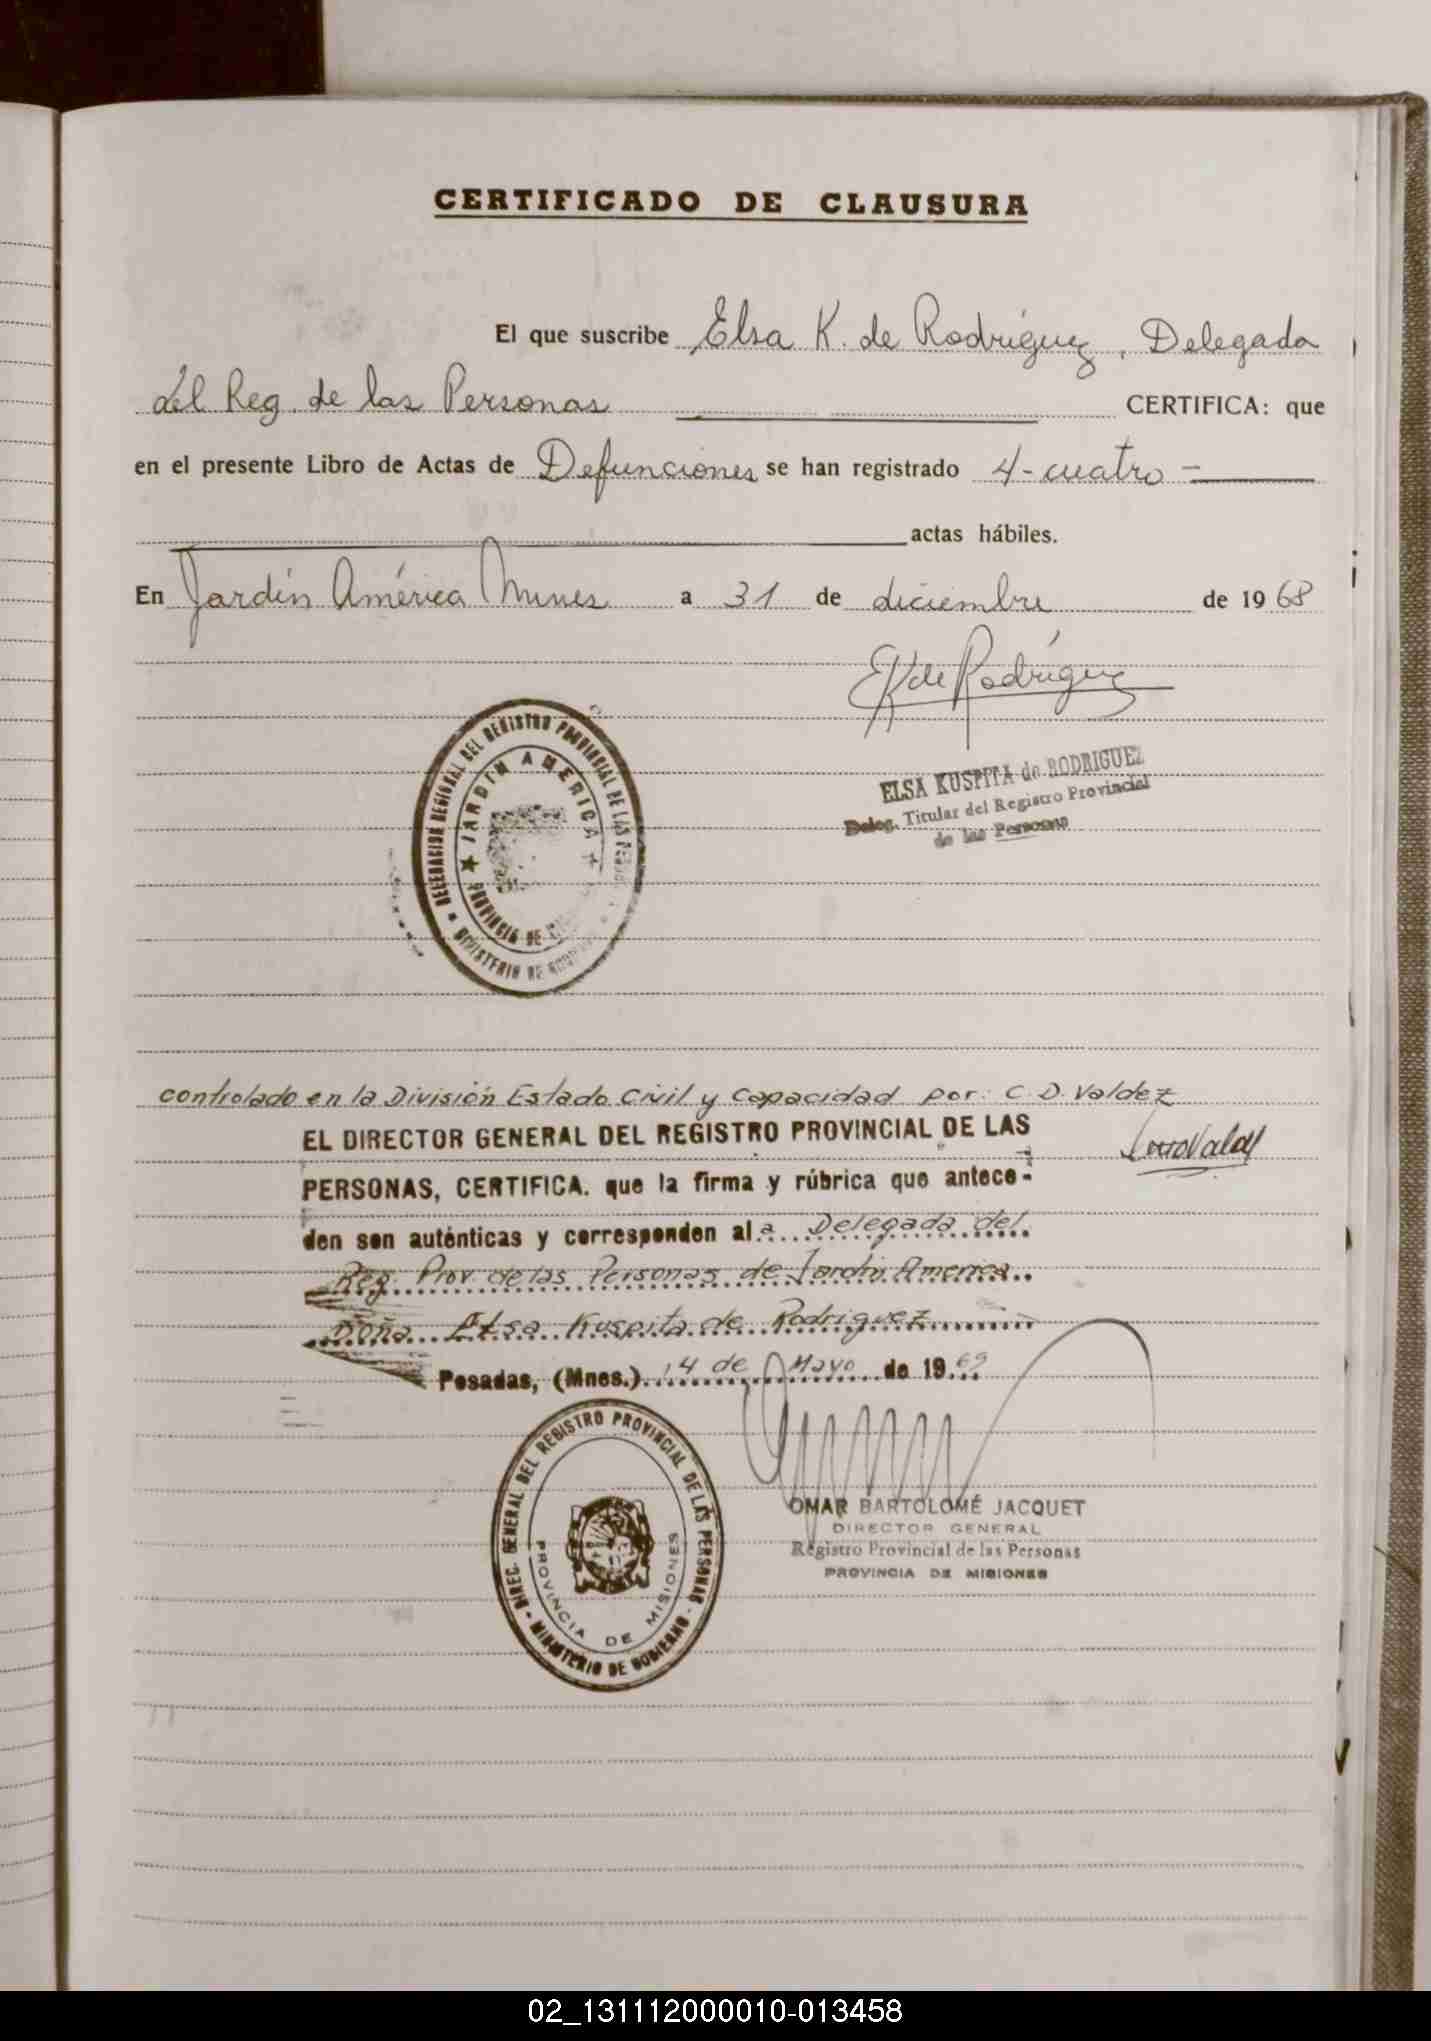 CERTIFICADO DE CLAUSURA
El que suscribe Elsa K. de Rodríguez, Delegada
del Reg. de las Personas CERTIFICA: que
en el presente Libro de Actas de Defunciones se han registrado 4 - cuatro -
actas hábiles.
En Jardín América Mnes a 31 de diciembre de 1968
EK de Rodríguez
DELEGACION REGIONAL DEL REGISTRO PROVINCIAL DE LAS
JARDIN AMERICA
PROVINCIA DE
MINISTERIO DE
ELSA KUSPITA de RODRIGUEZ
Deleg. Titular del Registro Provincial
de las Personas
controlado en la División Estado Civil y Capacidad por: C. D. Valdez
EL DIRECTOR GENERAL DEL REGISTRO PROVINCIAL DE LAS
PERSONAS, CERTIFICA. que la firma y rúbrica que antece-
den son auténticas y corresponden al a Delegada del
Reg. Prov de las Personas de Jardín America
Doña Elsa Kuspita de Rodriguez
Posadas, (Mnes.) 14 de Mayo de 1969
DIREC. GENERAL DEL REGISTRO PROVINCIAL DE LAS PERSONAS
PROVINCIA DE MISIONES
- MINISTERIO DE GOBIERNO -
OMAR BARTOLOMÉ JACQUET
DIRECTOR GENERAL
Registro Provincial de las Personas
PROVINCIA DE MISIONES
02_131112000010-013458